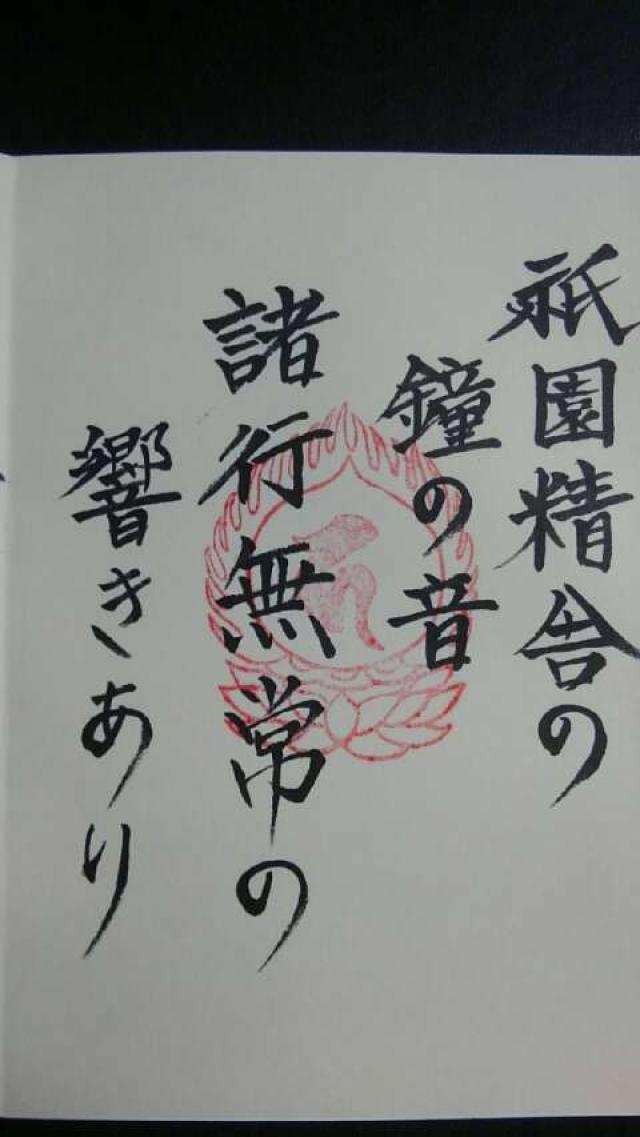 祇園精舎の
鐘の音
諸行無常の
響きあり